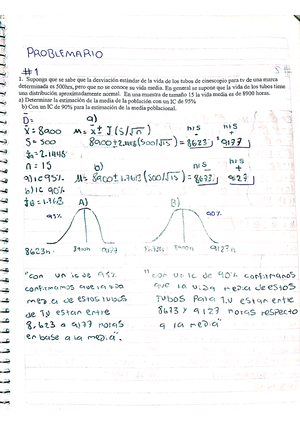 PROBLEMARIO
#1
1. Suponga que se sabe que la desviación estándar de la vida de los tubos de cinescopio para tv de una marca
determinada es 500hrs, pero que no se conoce su vida media. En general se supone que la vida de los tubos tiene
una distribución aproximadamente normal. En una muestra de tamaño 15 la vida media es de 8900 horas.
a) Determinar la estimación de la media de la población con un IC de 95%
b) Con un IC de 90% para la estimación de la media poblacional.
D= a)
x̄= 8900 M= x̄ ± t (S/√n) hrs hrs
S= 500 8900±2.1448(500/√15)= 8623 9177
n= 15 b) hrs hrs
a) IC 95% M= 8900±1.7613(500/√15)= 8673 9127
b) IC 90%
A) B)
95% 90%
8623h 8900h 9177h 8900h 9127h
"con un ic de 95%
confirmamos que la vida
media de estos tubos
de TV estan entre
8,623 a 9177 horas
en base a la media".
"con un ic de 90% confirmamos
que la vida media de estos
tubos para T.V estan entre
8673 y 9127 horas respecto
a la media"